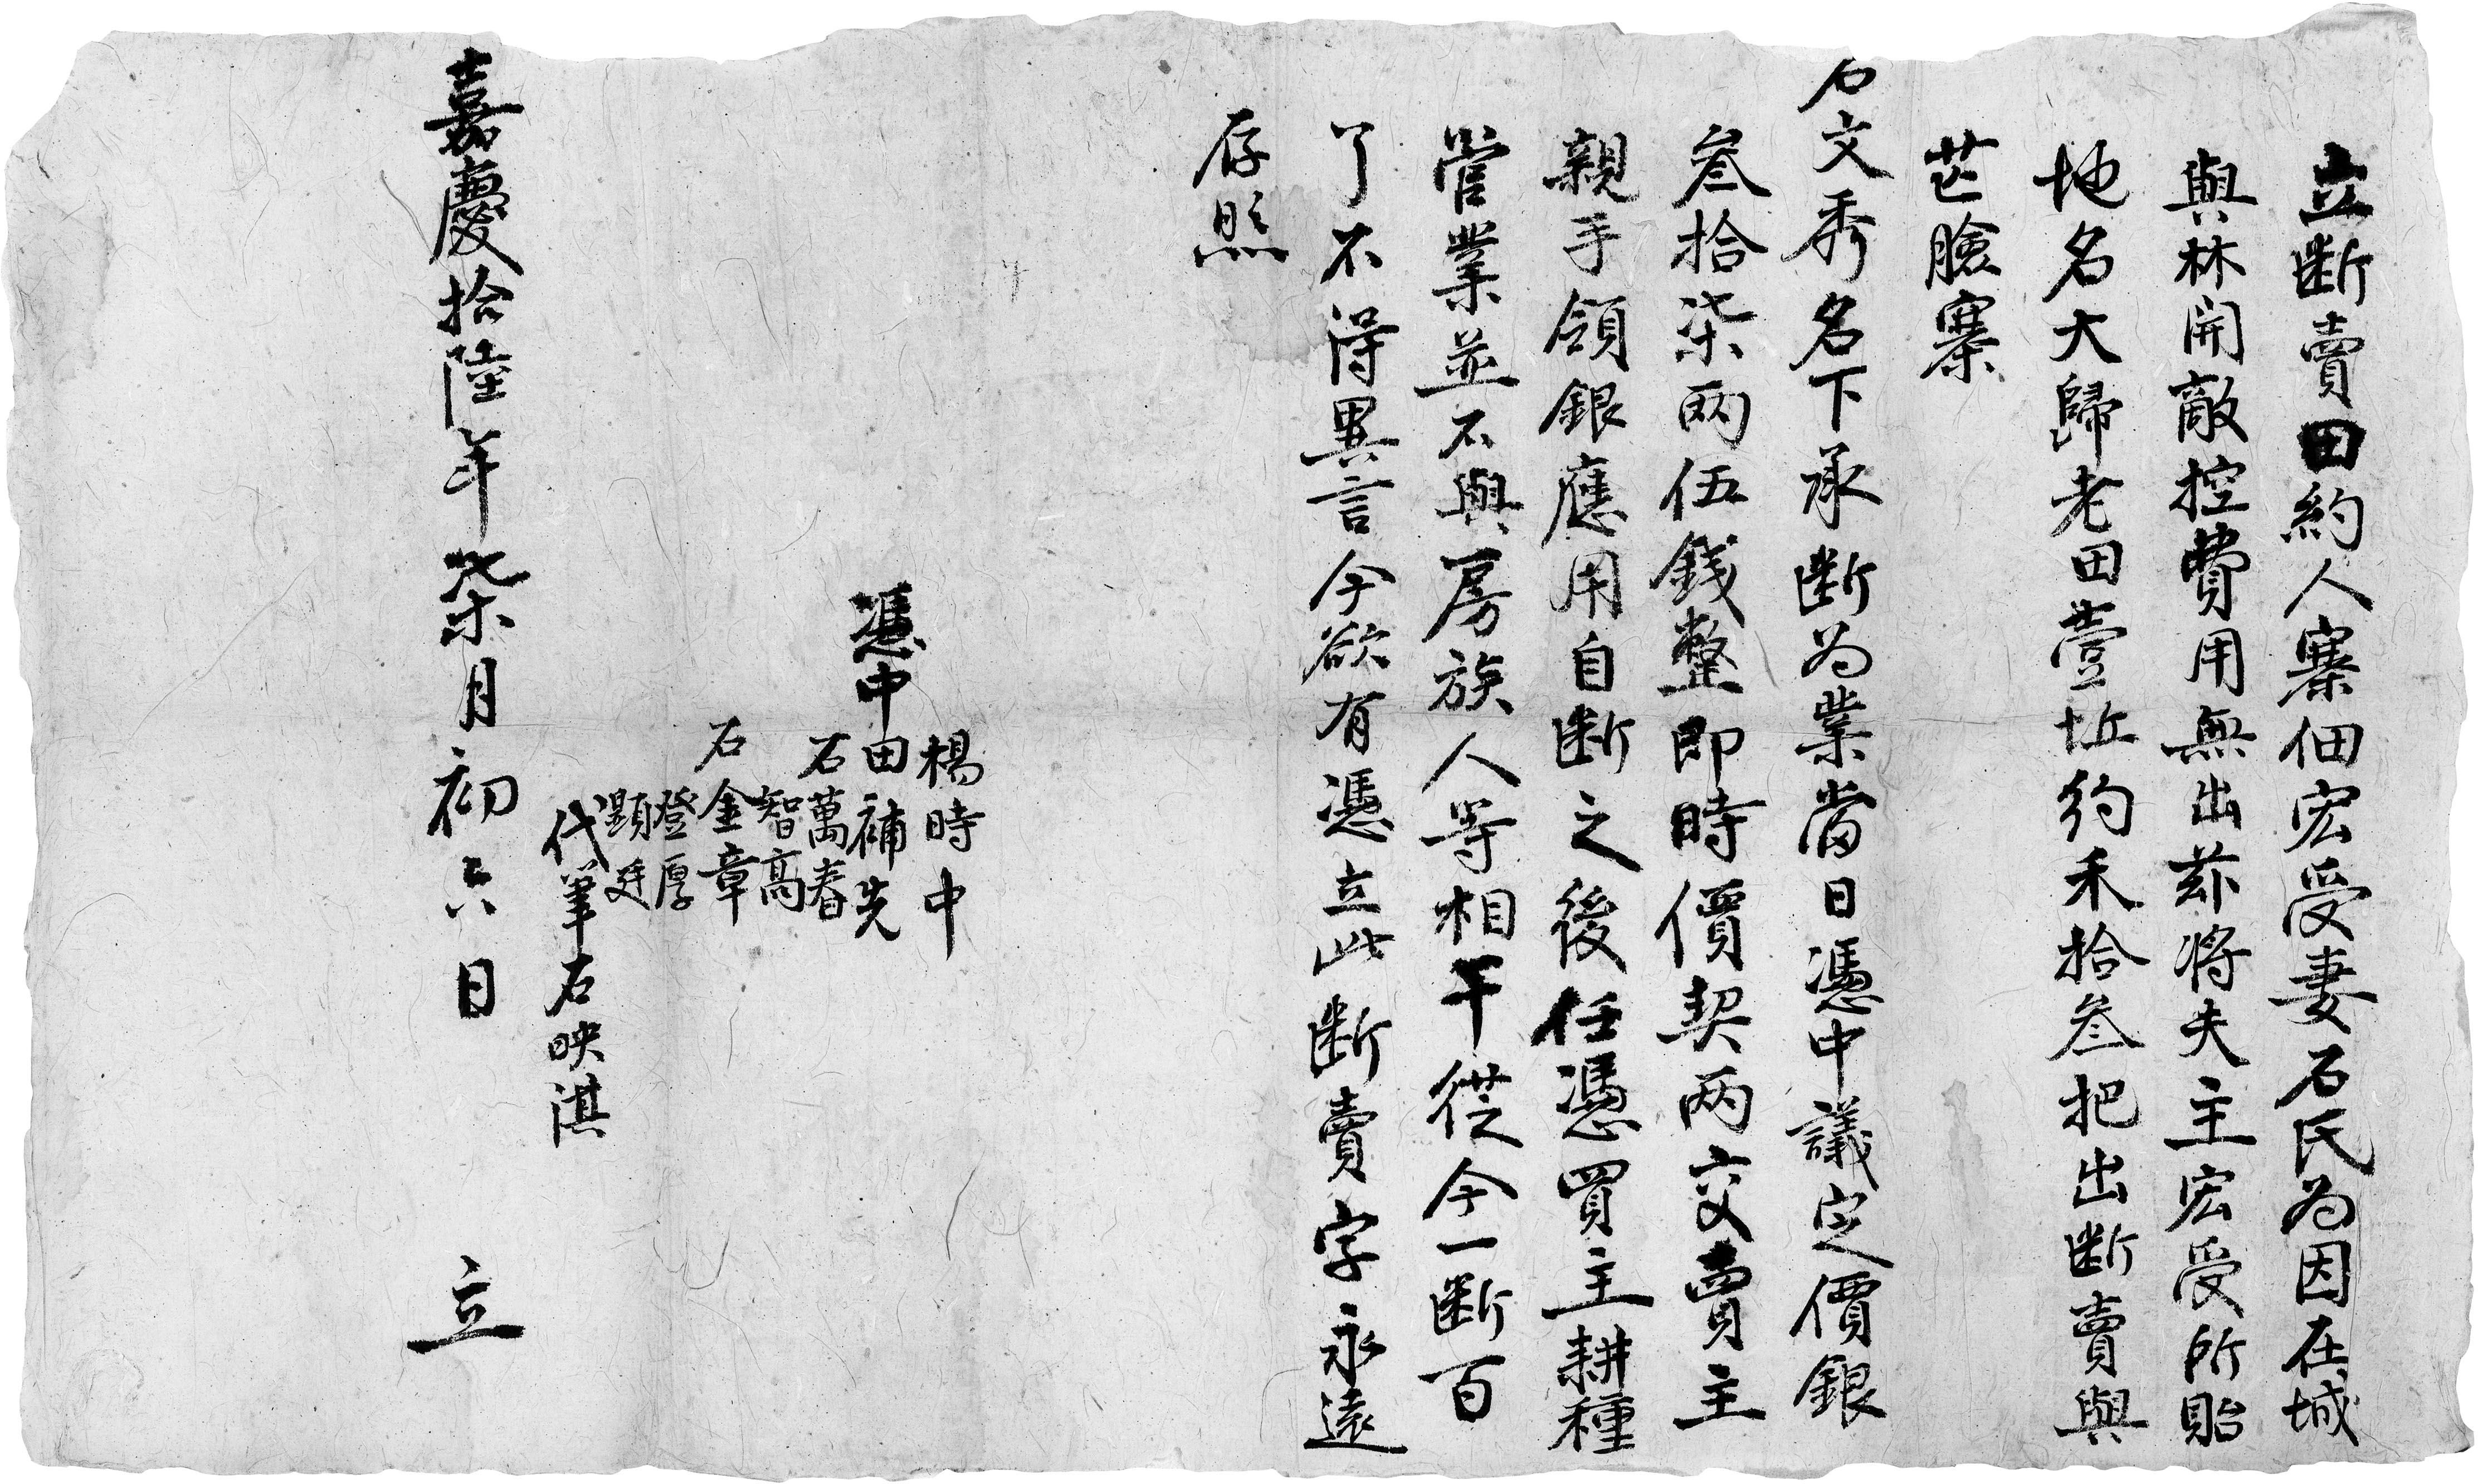 立断賣田約人寨佃宏受妻石氏为因在城
與林開敵控費用無出茲將夫主宏受所貽
地名大歸老田壹坵約禾拾叁把出断賣與
芒臉寨
石文秀名下承断为業當日憑中議定價銀
叁拾柒两伍錢整即時價契两交賣主
親手領銀應用自断之後任憑買主耕種
管業並不與房族人等相干從今一断百
了不得異言今欲有憑立此断賣字永遠
存照
楊時中
憑中田補先
石萬春
智高
石金章
登厚
顕廷
代筆石映淇
嘉慶拾陸年柒月初六日 立